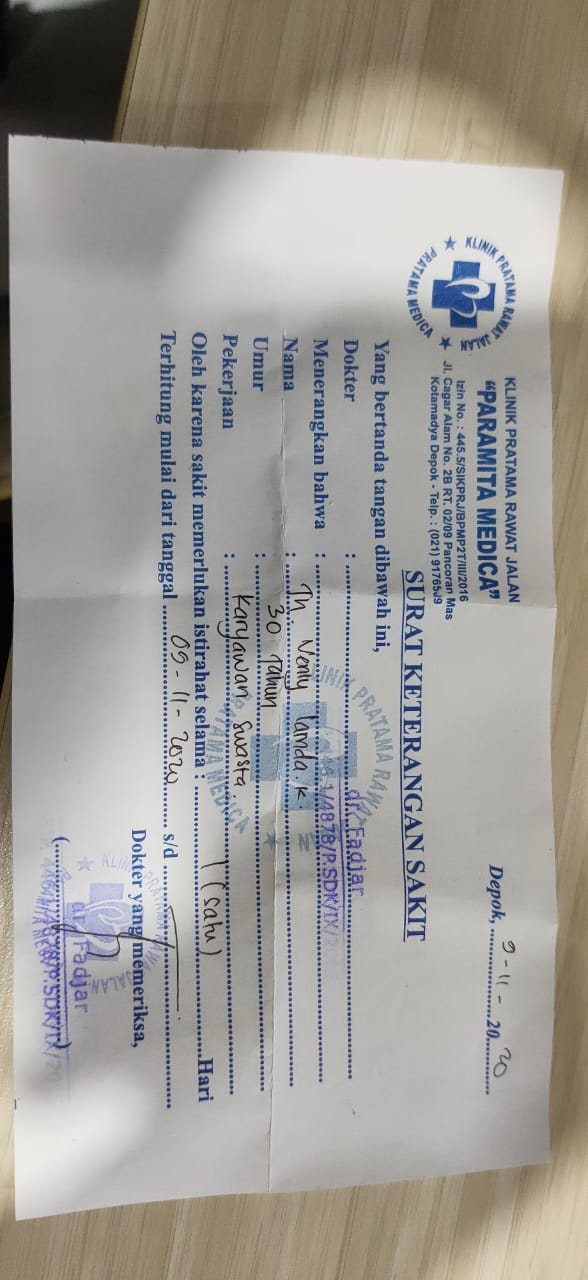 KLINIK PRATAMA RAWAT JALAN
PRATAMA MEDICA
KLINIK PRATAMA RAWAT JALAN
"PARAMITA MEDICA"
Izin No. : 445.5/SIKPRJ/BPMP2T/III/2016
Jl. Cagar Alam No. 2B RT. 02/09 Pancoran Mas
Kotamadya Depok - Telp. : (021) 9176
Depok, 9-11-2020
SURAT KETERANGAN SAKIT
Yang bertanda tangan dibawah ini,
Dokter : dr. Fadjar
Menerangkan bahwa :
Nama : Tn.
Umur : 30 Tahun
Pekerjaan : Karyawan Swasta.
Oleh karena sakit memerlukan istirahat selama : 1 (satu) Hari
Terhitung mulai dari tanggal 09-11-2020 s/d
Dokter yang memeriksa,
dr. Fadjar